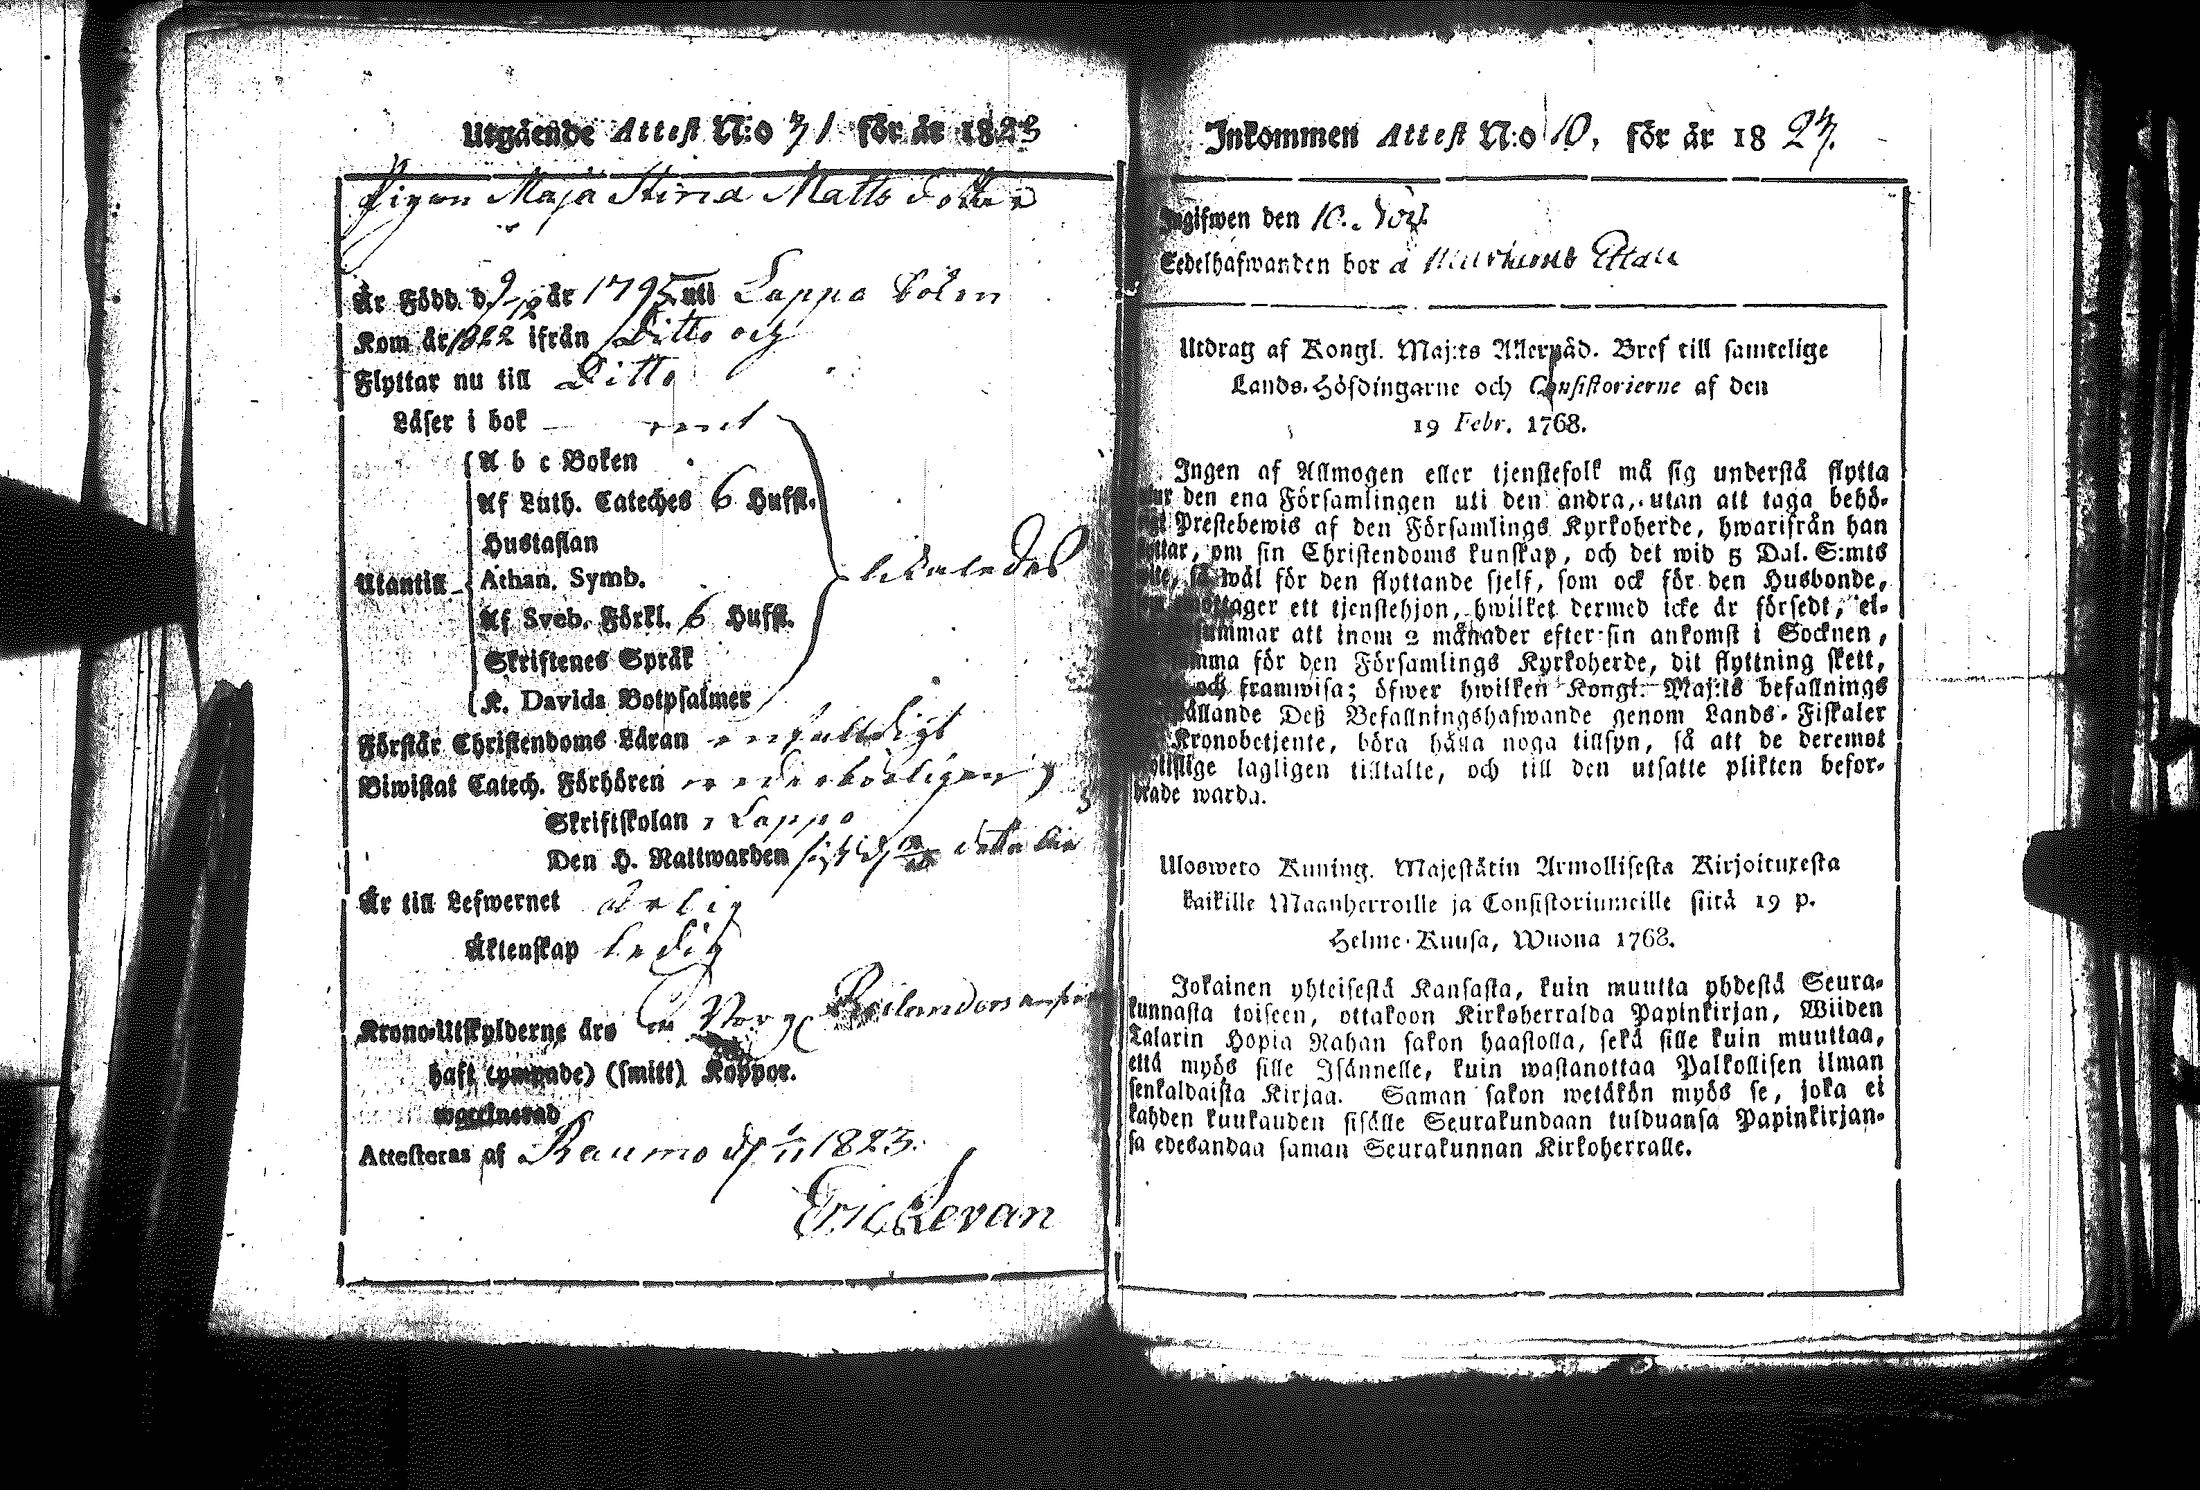 Utgående Attest N:o 71 för år 1823
Pigan Maja Stina Matts dotter
Är Född d. 9/12 år 1795 uti Lappo Sokn
Kom år 1822 ifrån Ditto och
Flyttar nu till Ditto
Läser i bok — rent
A b c Boken
Af Luth. Cateches 6 Hufst.
Hustaflan
Utantill Athan. Symb. likaledes
Af Sveb. Förkl. 6 Hufst.
Skriftenes Språk
K. Davids Botpsalmer
Förstår Christendoms Läran enfaldigt
Biwistat Catech. Förhören wederbörligen
Skriftskolan i Lappo
Den H. Nattwarden sist d. detta år
Är till Lefwernet ärlig
Äktenskap ledig
Krono-Utskylderne äro
haft (ympade) (smitt) Koppor.
waccinerad
Attesteras af Raumo d. 1/11 1823.
Eric Levan
Inkommen Attest N:o 10, för år 1823.
Ingifwen den 10.
Sedelhafwanden bor å
Utdrag af Kongl. Maj:ts Allernåd. Bref till samtelige
Lands-Höfdingarne och Consistorierne af den
19 Febr. 1768.
Ingen af Allmogen eller tjenstefolk må sig understå flytta
den ena Församlingen uti den andra, utan att taga behö-
Prestebewis af den Församlings Kyrkoherde, hwarifrån han
flyttar, om sin Christendoms kunskap, och det wid 5 Dal. S:mts
wite, så wäl för den flyttande sjelf, som ock för den Husbonde,
emottager ett tjenstehjon, hwilket dermed icke är försedt, el-
försummar att inom 2 månader efter sin ankomst i Socknen,
för den Församlings Kyrkoherde, dit flyttning skett,
och framwisa; öfwer hwilken Kongl. Maj:ts befallnings
Deß Befallningshafwande genom Lands-Fiskaler
Kronobetjente, böra hålla noga tillsyn, så att de deremot
lagligen tilltalte, och till den utsatte plikten befor-
drade warda.
Ulosweto Kuning. Majestätin Armollisesta Kirjoituxesta
kaikille Maanherroille ja Consistoriumeille siitä 19 p.
Helme-Kuusa, Wuona 1768.
Jokainen yhteisestä Kansasta, kuin muutta yhdestä Seura-
kunnasta toiseen, ottakoon Kirkoherralda Papinkirjan, Wiiden
Talarin Hopia Rahan sakon haastolla, sekä sille kuin muuttaa,
että myös sille Isännelle, kuin wastanottaa Palkollisen ilman
senkaldaista Kirjaa. Saman sakon wetäkön myös se, joka ei
kahden kuukauden sisälle Seurakundaan tulduansa Papinkirjan-
sa edesandaa saman Seurakunnan Kirkoherralle.